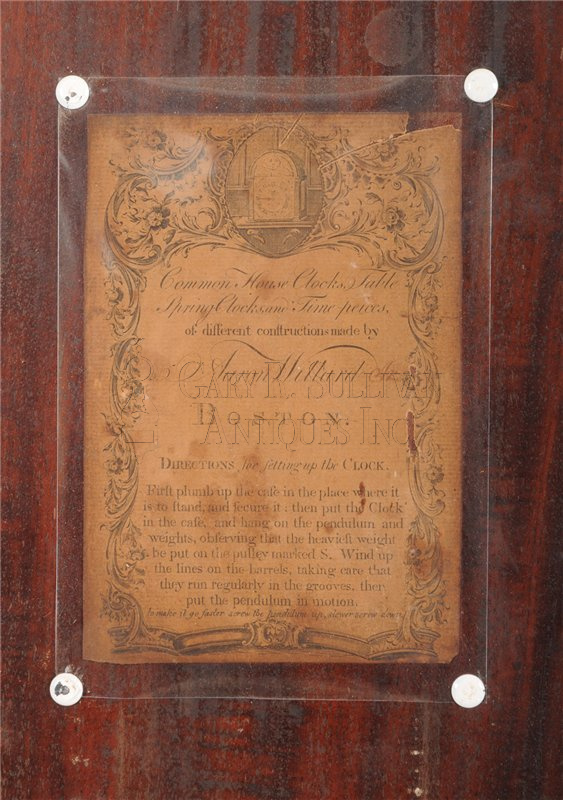 Common House Clocks, Table
Spring Clocks, and Time peices,
of different conſtructions made by
Aaron Willard
BOSTON.
DIRECTIONS for ſetting up the CLOCK.
Firſt plumb up the caſe in the place where it
is to ſtand, and ſecure it: then put the Clock
in the caſe, and hang on the pendulum and
weights, obſerving that the heavieſt weight
be put on the pulley marked S. Wind up
the lines on the barrels, taking care that
they run regularly in the grooves, then
put the pendulum in motion.
to make it go faster screw the pendulum up, slower screw down
GARY R. SULLIVAN
ANTIQUES INC